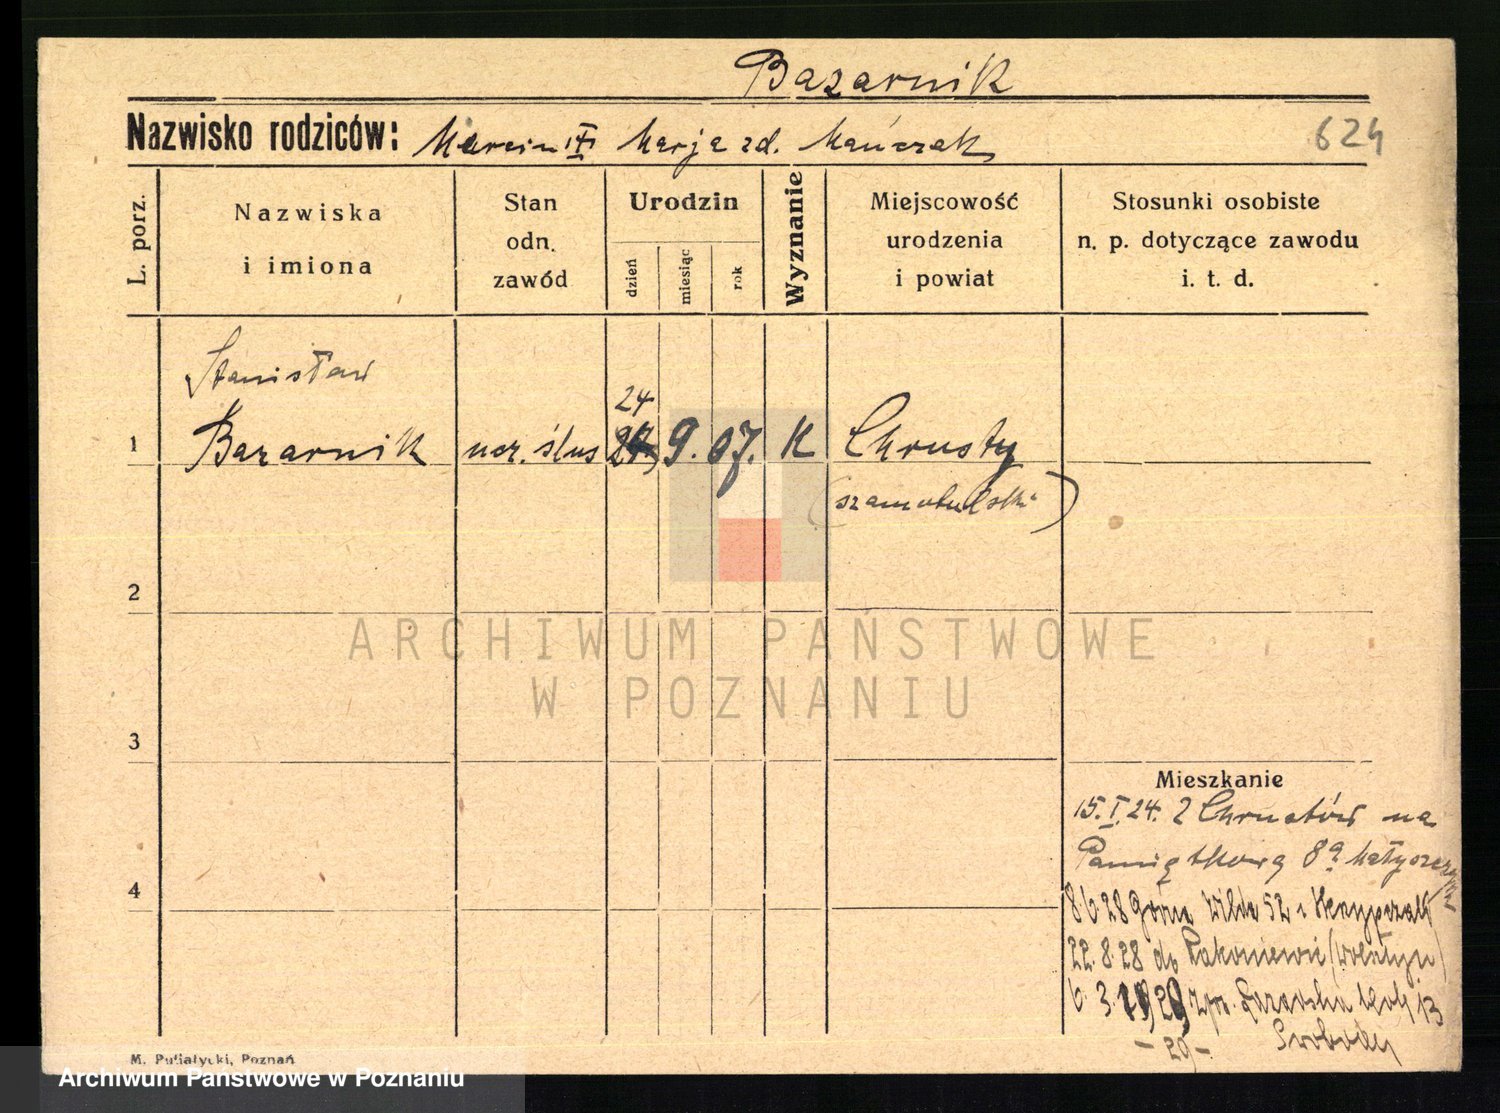 Bazarnik
Nazwisko rodziców: Marcin Marja zd. Mańczak
624
L. porz.
Nazwiska
i imiona
Stan
odn.
zawód
Urodzin
dzień
miesiąc
rok
Wyznanie
Miejscowość
urodzenia
i powiat
Stosunki osobiste
n. p. dotyczące zawodu
i. t. d.
Stanisław
24
1 Bazarnik ucz. ślus 9. 07. K Chrusty
(szamotulski)
2
ARCHIWUM PAŃSTWOWE
W POZNANIU
3
Mieszkanie
15.I.24. Z na
Pamiątkową 8a
4
8 6 28 Górna Wilda 52
22. 8. 28 do Rakoniewic (Wolsztyn)
6. 3. 1929 13
- 29 -
M. Putiatycki, Poznań
Archiwum Państwowe w Poznaniu